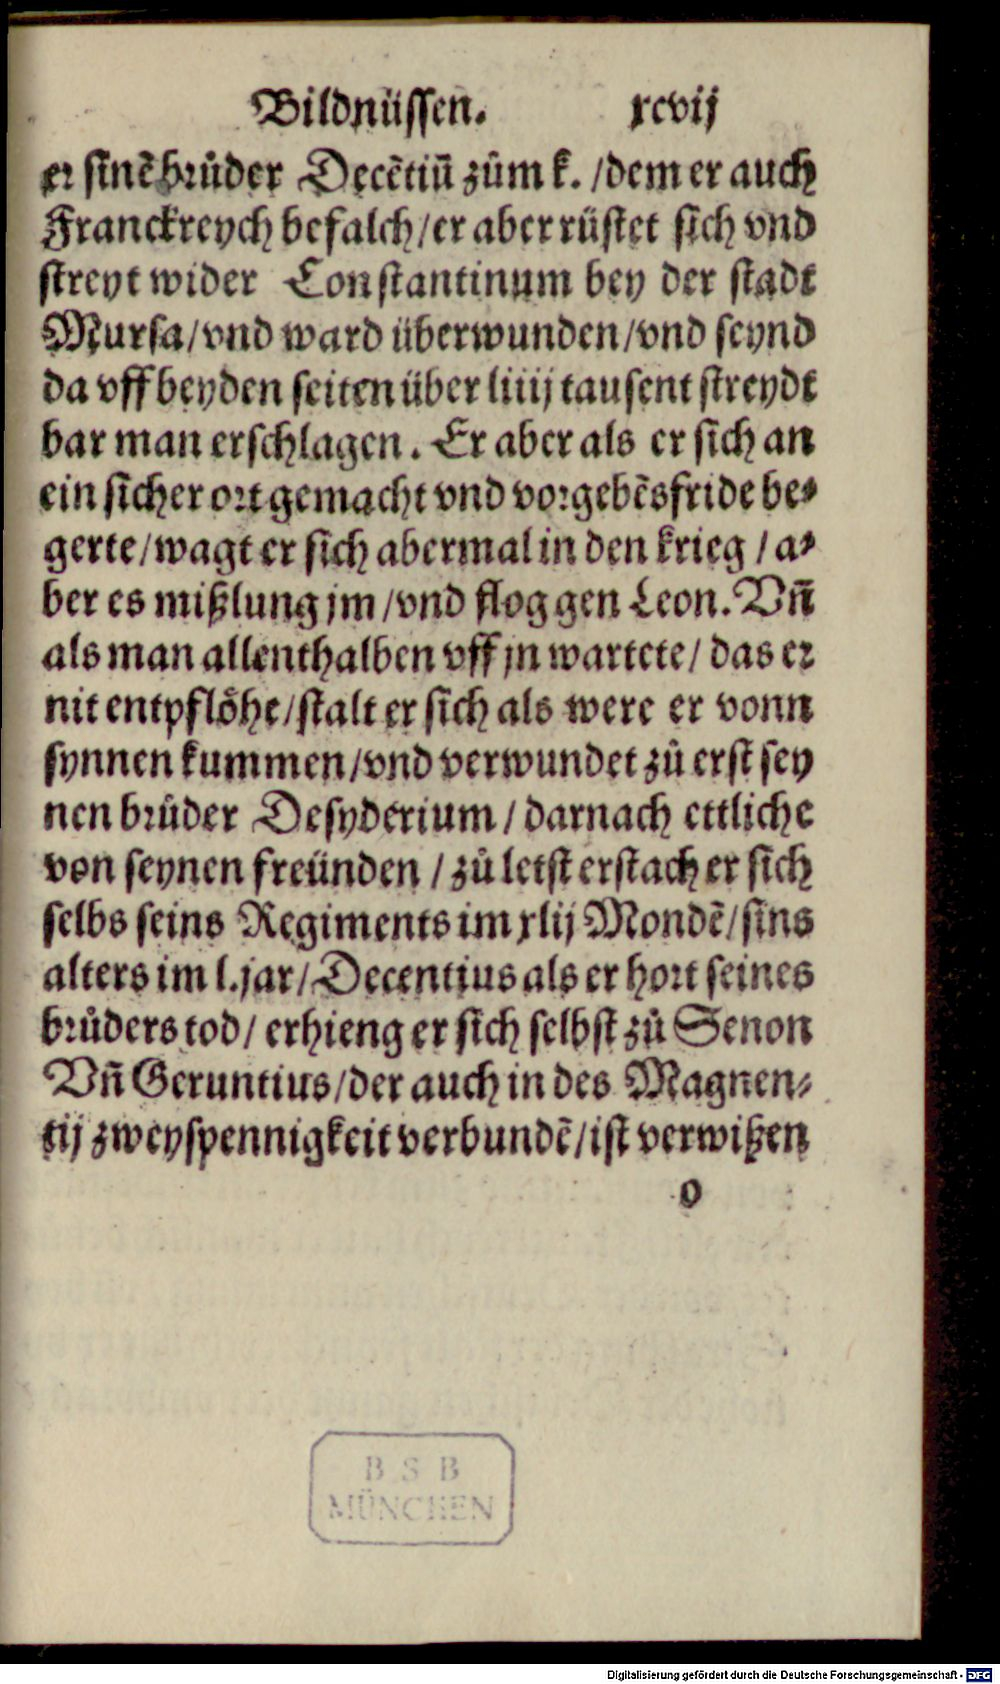 Bildnüssen. xcvij
er sinẽ brůder Decẽtiũ zům k. /dem er auch
Franckreych befalch/er aber rüstet sich vnd
streyt wider Constantinum bey der stadt
Mursa/vnd ward überwunden/vnd seynd
da vff beyden seiten über liiij tausent streydt
bar man erschlagen. Er aber als er sich an
ein sicher ort gemacht vnd vorgebẽs fride be⸗
gerte/wagt er sich abermal in den krieg / a⸗
ber es mißlung jm/vnd flog gen Leon. Vñ
als man allenthalben vff jn wartete/ das er
nit entpflöhe/stalt er sich als were er vonn
synnen kummen/vnd verwundet zů erst sey
nen brůder Desyderium/ darnach ettliche
von seynen freünden / zů letst erstach er sich
selbs seins Regiments im xlij Mondẽ/sins
alters im l.jar/Decentius als er hort seines
brůders tod/ erhieng er sich selbst zů Senon
Vñ Geruntius/der auch in des Magnen⸗
tij zweyspennigkeit verbundẽ/ist verwißen
o
B S B
MÜNCHEN
Digitalisierung gefördert durch die Deutsche Forschungsgemeinschaft - DFG